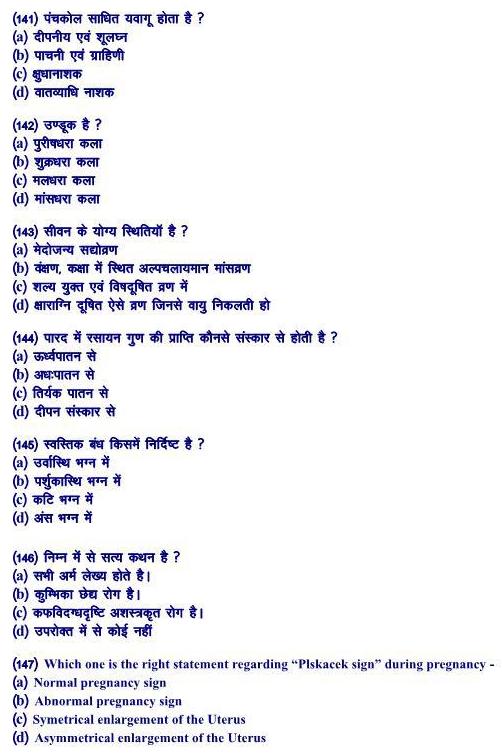 (141) पंचकोल साधित यवागू होता है ?
(a) दीपनीय एवं शूलघ्न
(b) पाचनी एवं ग्राहिणी
(c) क्षुधानाशक
(d) वातव्याधि नाशक
(142) उण्डूक है ?
(a) पुरीषधरा कला
(b) शुक्रधरा कला
(c) मलधरा कला
(d) मांसधरा कला
(143) सीवन के योग्य स्थितियॉ है ?
(a) मेदोजन्य सद्योव्रण
(b) वंक्षण, कक्षा में स्थित अल्पचलायमान मांसव्रण
(c) शल्य युक्त एवं विषदूषित व्रण में
(d) क्षाराग्नि दूषित ऐसे व्रण जिनसे वायु निकलती हो
(144) पारद में रसायन गुण की प्राप्ति कौनसे संस्कार से होती है ?
(a) ऊर्ध्वपातन से
(b) अधःपातन से
(c) तिर्यक पातन से
(d) दीपन संस्कार से
(145) स्वस्तिक बंध किसमें निर्दिष्ट है ?
(a) उर्वास्थि भग्न में
(b) पर्शुकास्थि भग्न में
(c) कटि भग्न में
(d) अंस भग्न में
(146) निम्न में से सत्य कथन है ?
(a) सभी अर्म लेख्य होते है।
(b) कुम्भिका छेद्य रोग है।
(c) कफविदग्धदृष्टि अशस्त्रकृत रोग है।
(d) उपरोक्त में से कोई नहीं
(147) Which one is the right statement regarding “Plskacek sign” during pregnancy -
(a) Normal pregnancy sign
(b) Abnormal pregnancy sign
(c) Symetrical enlargement of the Uterus
(d) Asymmetrical enlargement of the Uterus